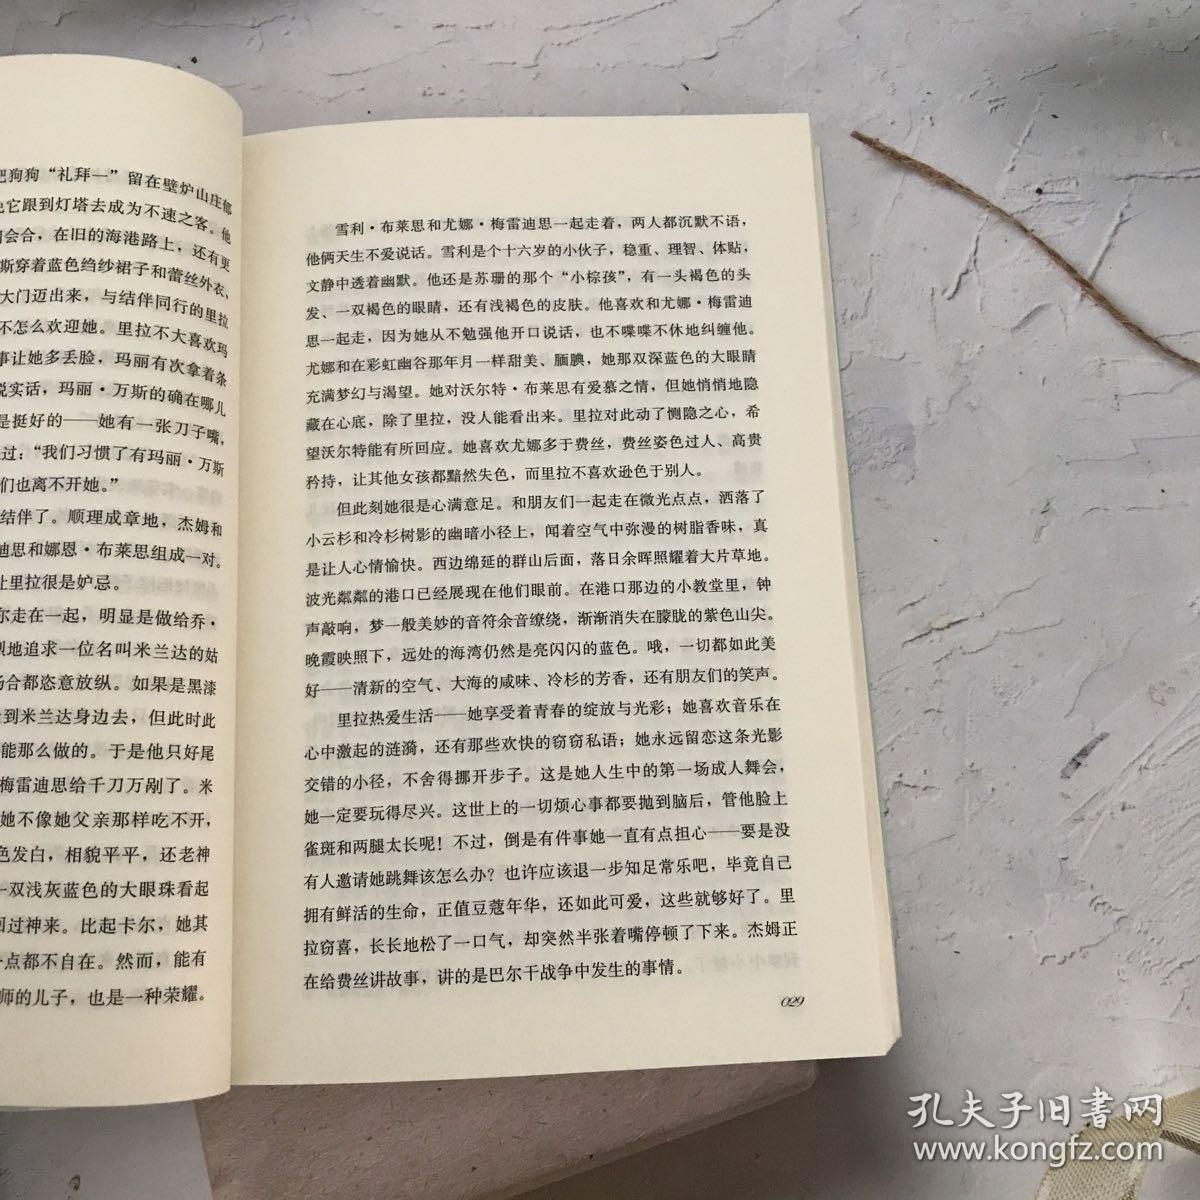 把狗狗“礼拜一”留在壁炉山庄郁
它跟到灯塔去成为不速之客。他
会合，在旧的海港路上，还有更
斯穿着蓝色绉纱裙子和蕾丝外衣，
大门迈出来，与结伴同行的里拉
不怎么欢迎她。里拉不大喜欢玛
事让她多丢脸，玛丽有次拿着条
说实话，玛丽·万斯的确在哪儿
是挺好的——她有一张刀子嘴，
过：“我们习惯了有玛丽·万斯
们也离不开她。”
结伴了。顺理成章地，杰姆和
迪思和娜恩·布莱思组成一对。
让里拉很是妒忌。
尔走在一起，明显是做给乔·
烈地追求一位名叫米兰达的姑
场合都恣意放纵。如果是黑漆
到米兰达身边去，但此时此
能那么做的。于是他只好尾
梅雷迪思给千刀万剐了。米
她不像她父亲那样吃不开，
色发白，相貌平平，还老神
一双浅灰蓝色的大眼珠看起
回过神来。比起卡尔，她其
一点都不自在。然而，能有
师的儿子，也是一种荣耀。
雪利·布莱思和尤娜·梅雷迪思一起走着，两人都沉默不语，
他俩天生不爱说话。雪利是个十六岁的小伙子，稳重、理智、体贴，
文静中透着幽默。他还是苏珊的那个“小棕孩”，有一头褐色的头
发、一双褐色的眼睛，还有浅褐色的皮肤。他喜欢和尤娜·梅雷迪
思一起走，因为她从不勉强他开口说话，也不喋喋不休地纠缠他。
尤娜和在彩虹幽谷那年月一样甜美、腼腆，她那双深蓝色的大眼睛
充满梦幻与渴望。她对沃尔特·布莱思有爱慕之情，但她悄悄地隐
藏在心底，除了里拉，没人能看出来。里拉对此动了恻隐之心，希
望沃尔特能有所回应。她喜欢尤娜多于费丝，费丝姿色过人、高贵
矜持，让其他女孩都黯然失色，而里拉不喜欢逊色于别人。
但此刻她很是心满意足。和朋友们一起走在微光点点，洒落了
小云杉和冷杉树影的幽暗小径上，闻着空气中弥漫的树脂香味，真
是让人心情愉快。西边绵延的群山后面，落日余晖照耀着大片草地。
波光粼粼的港口已经展现在他们眼前。在港口那边的小教堂里，钟
声敲响，梦一般美妙的音符余音缭绕，渐渐消失在朦胧的紫色山尖。
晚霞映照下，远处的海湾仍然是亮闪闪的蓝色。哦，一切都如此美
好——清新的空气、大海的咸味、冷杉的芳香，还有朋友们的笑声。
里拉热爱生活——她享受着青春的绽放与光彩；她喜欢音乐在
心中激起的涟漪，还有那些欢快的窃窃私语；她永远留恋这条光影
交错的小径，不舍得挪开步子。这是她人生中的第一场成人舞会，
她一定要玩得尽兴。这世上的一切烦心事都要抛到脑后，管他脸上
雀斑和两腿太长呢！不过，倒是有件事她一直有点担心——要是没
有人邀请她跳舞该怎么办？也许应该退一步知足常乐吧，毕竟自己
拥有鲜活的生命，正值豆蔻年华，还如此可爱，这些就够好了。里
拉窃喜，长长地松了一口气，却突然半张着嘴停顿了下来。杰姆正
在给费丝讲故事，讲的是巴尔干战争中发生的事情。
029
孔夫子旧书网
www.kongfz.com